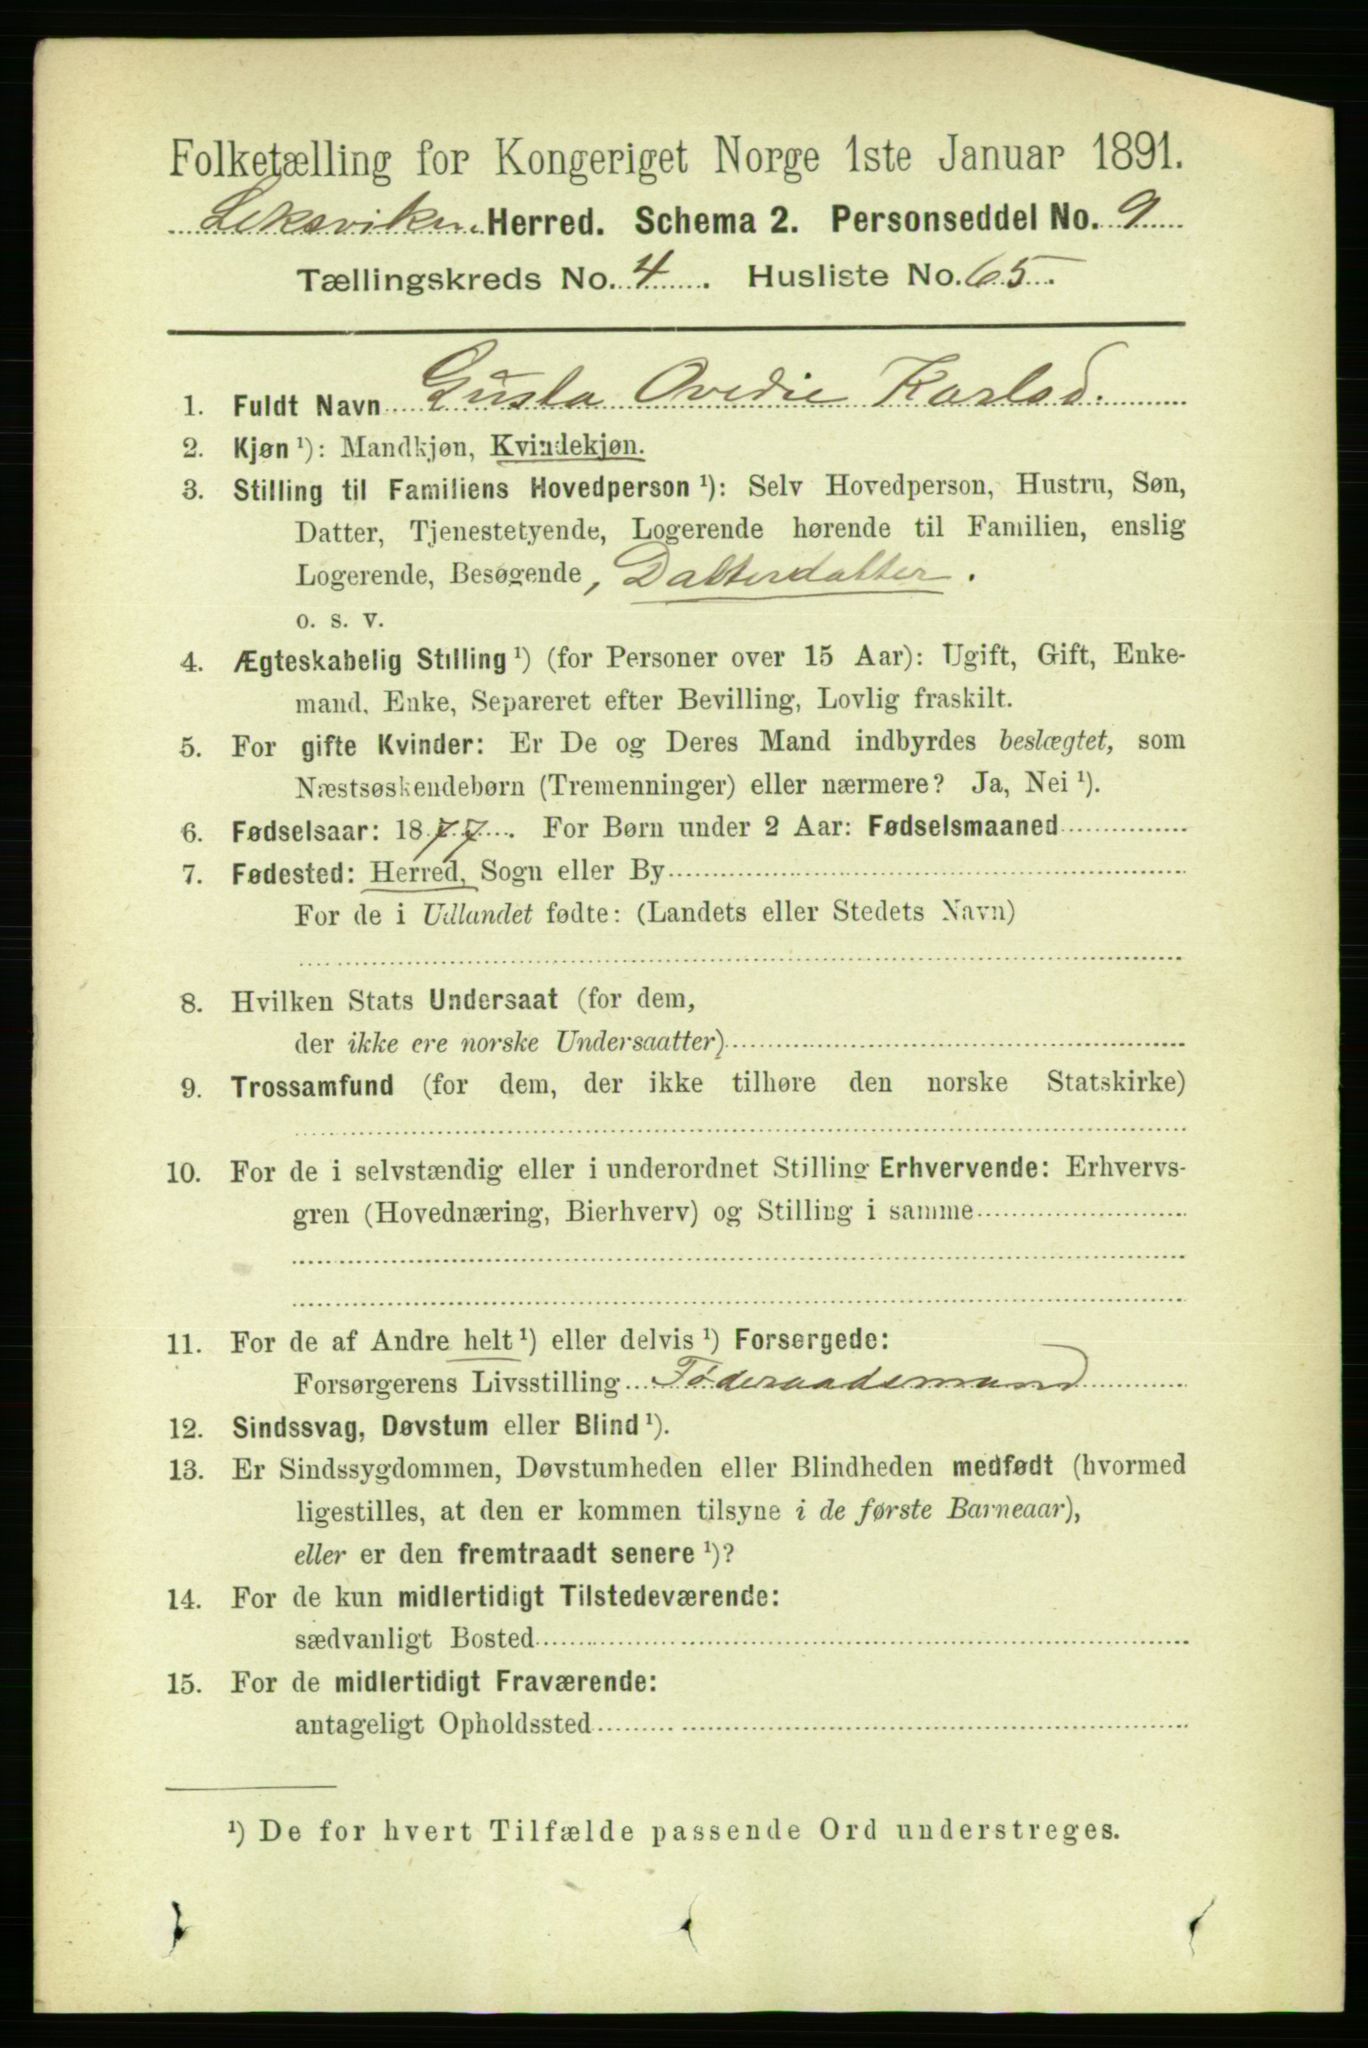 Folketælling for Kongeriget Norge 1ste Januar 1891.
Leksviken Herred. Schema 2. Personseddel No. 9
Tællingskreds No. 4. Husliste No. 65.
1. Fuldt Navn Gusta Ovedie Karlsd.
2. Kjøn ¹): Mandkjøn, Kvindekjøn.
3. Stilling til Familiens Hovedperson ¹): Selv Hovedperson, Hustru, Søn,
Datter, Tjenestetyende, Logerende hørende til Familien, enslig
Logerende, Besøgende, Datterdatter.
o. s. v.
4. Ægteskabelig Stilling ¹) (for Personer over 15 Aar): Ugift, Gift, Enke-
mand, Enke, Separeret efter Bevilling, Lovlig fraskilt.
5. For gifte Kvinder: Er De og Deres Mand indbyrdes beslægtet, som
Næstsøskendebørn (Tremenninger) eller nærmere? Ja, Nei ¹).
6. Fødselsaar: 1877. For Børn under 2 Aar: Fødselsmaaned
7. Fødested: Herred, Sogn eller By
For de i Udlandet fødte: (Landets eller Stedets Navn)
8. Hvilken Stats Undersaat (for dem,
der ikke ere norske Undersaatter)
9. Trossamfund (for dem, der ikke tilhøre den norske Statskirke)
10. For de i selvstændig eller i underordnet Stilling Erhvervende: Erhvervs-
gren (Hovednæring, Bierhverv) og Stilling i samme
11. For de af Andre helt ¹) eller delvis ¹) Forsørgede:
Forsørgerens Livsstilling Føderaadsmand
12. Sindssvag, Døvstum eller Blind ¹).
13. Er Sindssygdommen, Døvstumheden eller Blindheden medfødt (hvormed
ligestilles, at den er kommen tilsyne i de første Barneaar),
eller er den fremtraadt senere ¹)?
14. For de kun midlertidigt Tilstedeværende:
sædvanligt Bosted
15. For de midlertidigt Fraværende:
antageligt Opholdssted
¹) De for hvert Tilfælde passende Ord understreges.